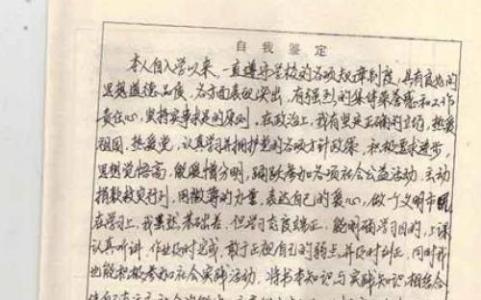 自我鉴定
本人自入学以来，一直遵守学校的各项规章制度，具有良好的
思想道德品质，各方面表现突出，有强烈的集体荣誉感和工作
责任心，坚持实事求是的原则。在政治上，我有坚定正确的立场，热爱
祖国，热爱党，认真学习并拥护党的各项方针政策，积极要求进步，
思想觉悟高，能爱憎分明，踊跃参加各项社会公益活动，主动
捐款救灾行列，用微薄的力量，表达自己的爱心，做个文明市民
在学习上，我虽然基础差，但学习态度端正，能明确学习目的，上课
认真听讲，作业按时完成，敢于正视自己的弱点，并及时纠正，同时我
也能积极参加社会实践活动，将书本知识与实践知识相结合